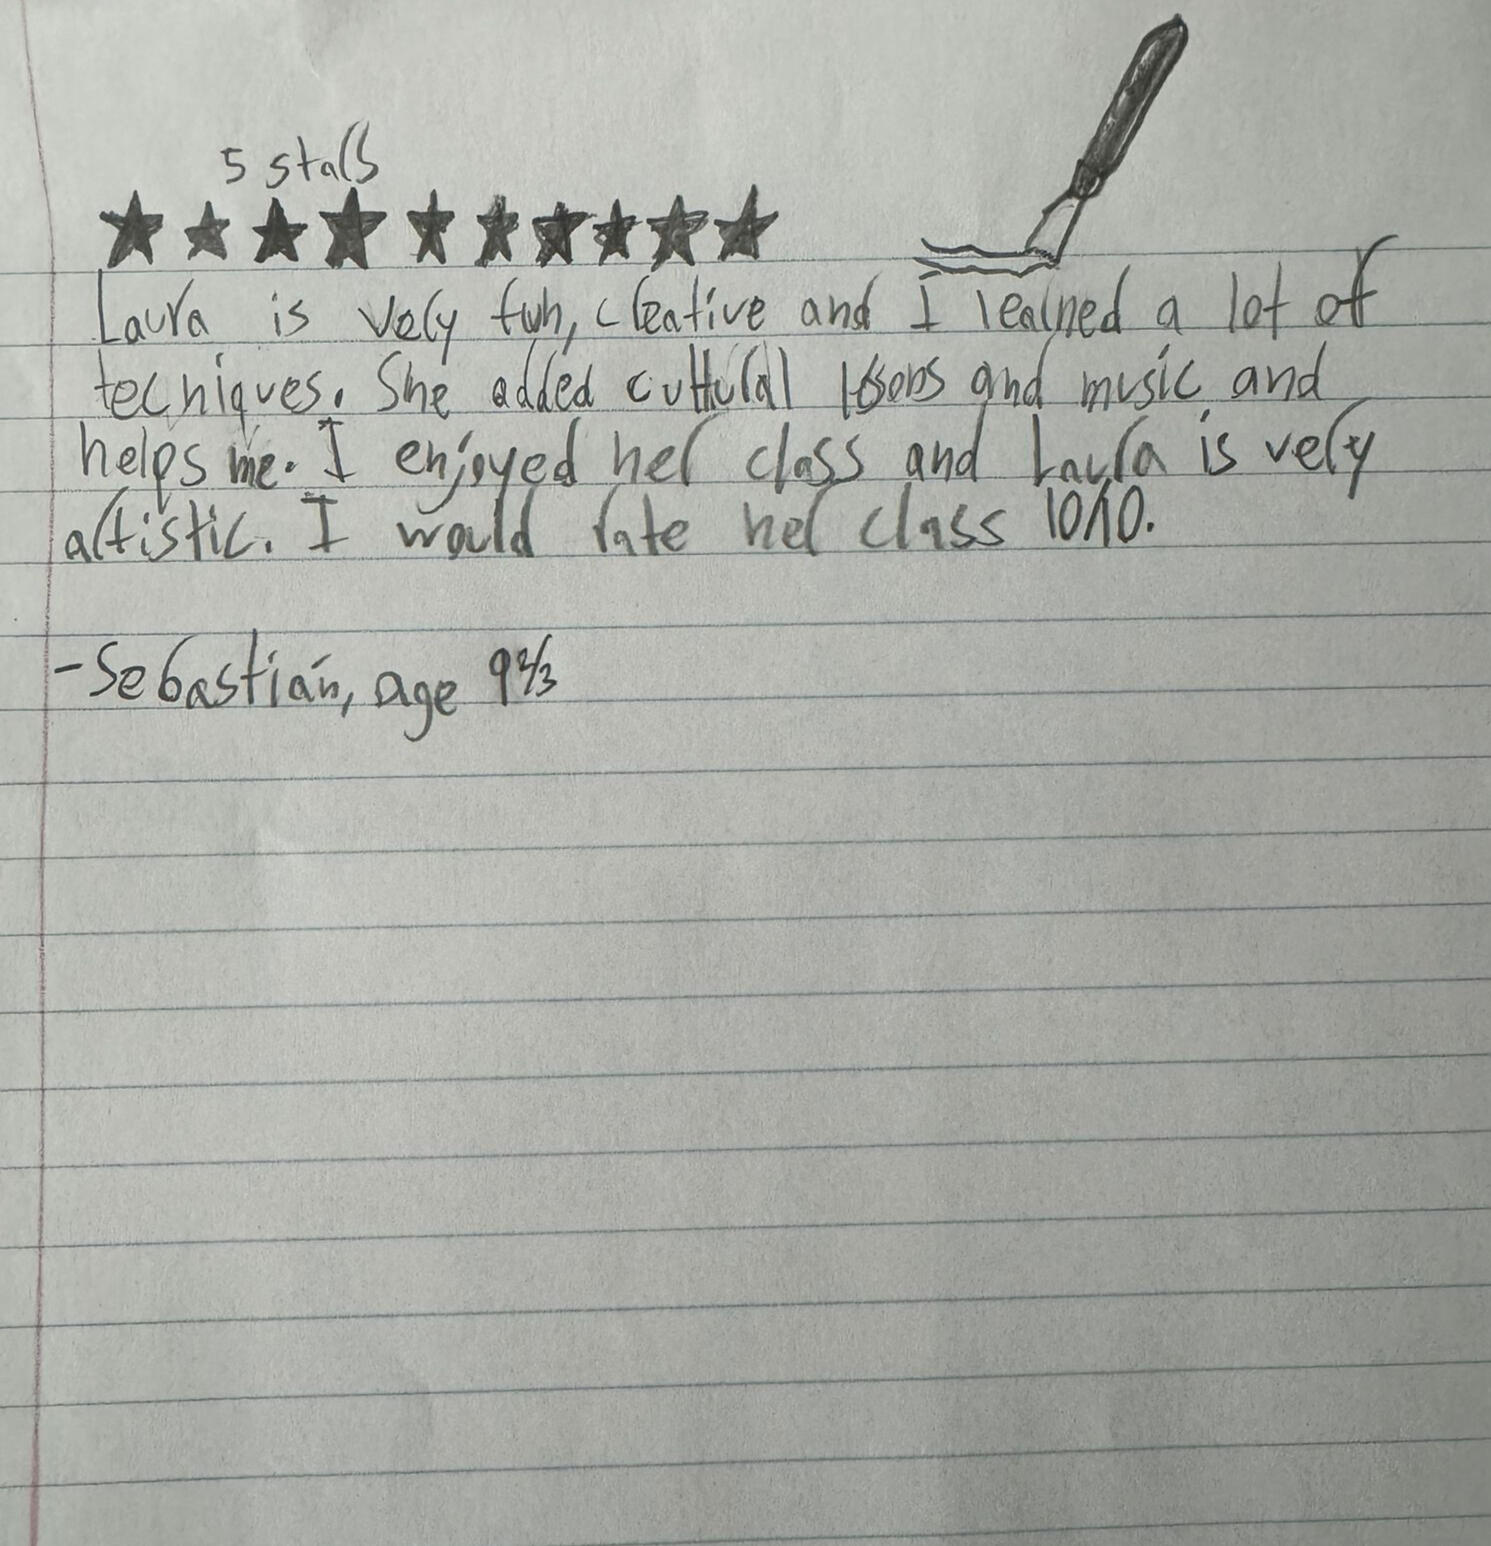 5 stars
Laura is very fun, creative and I learned a lot of
techniques. She added cultural lessons and music and
helps me. I enjoyed her class and Laura is very
artistic. I would rate her class 10/10.
-Sebastián, age 9 2/3